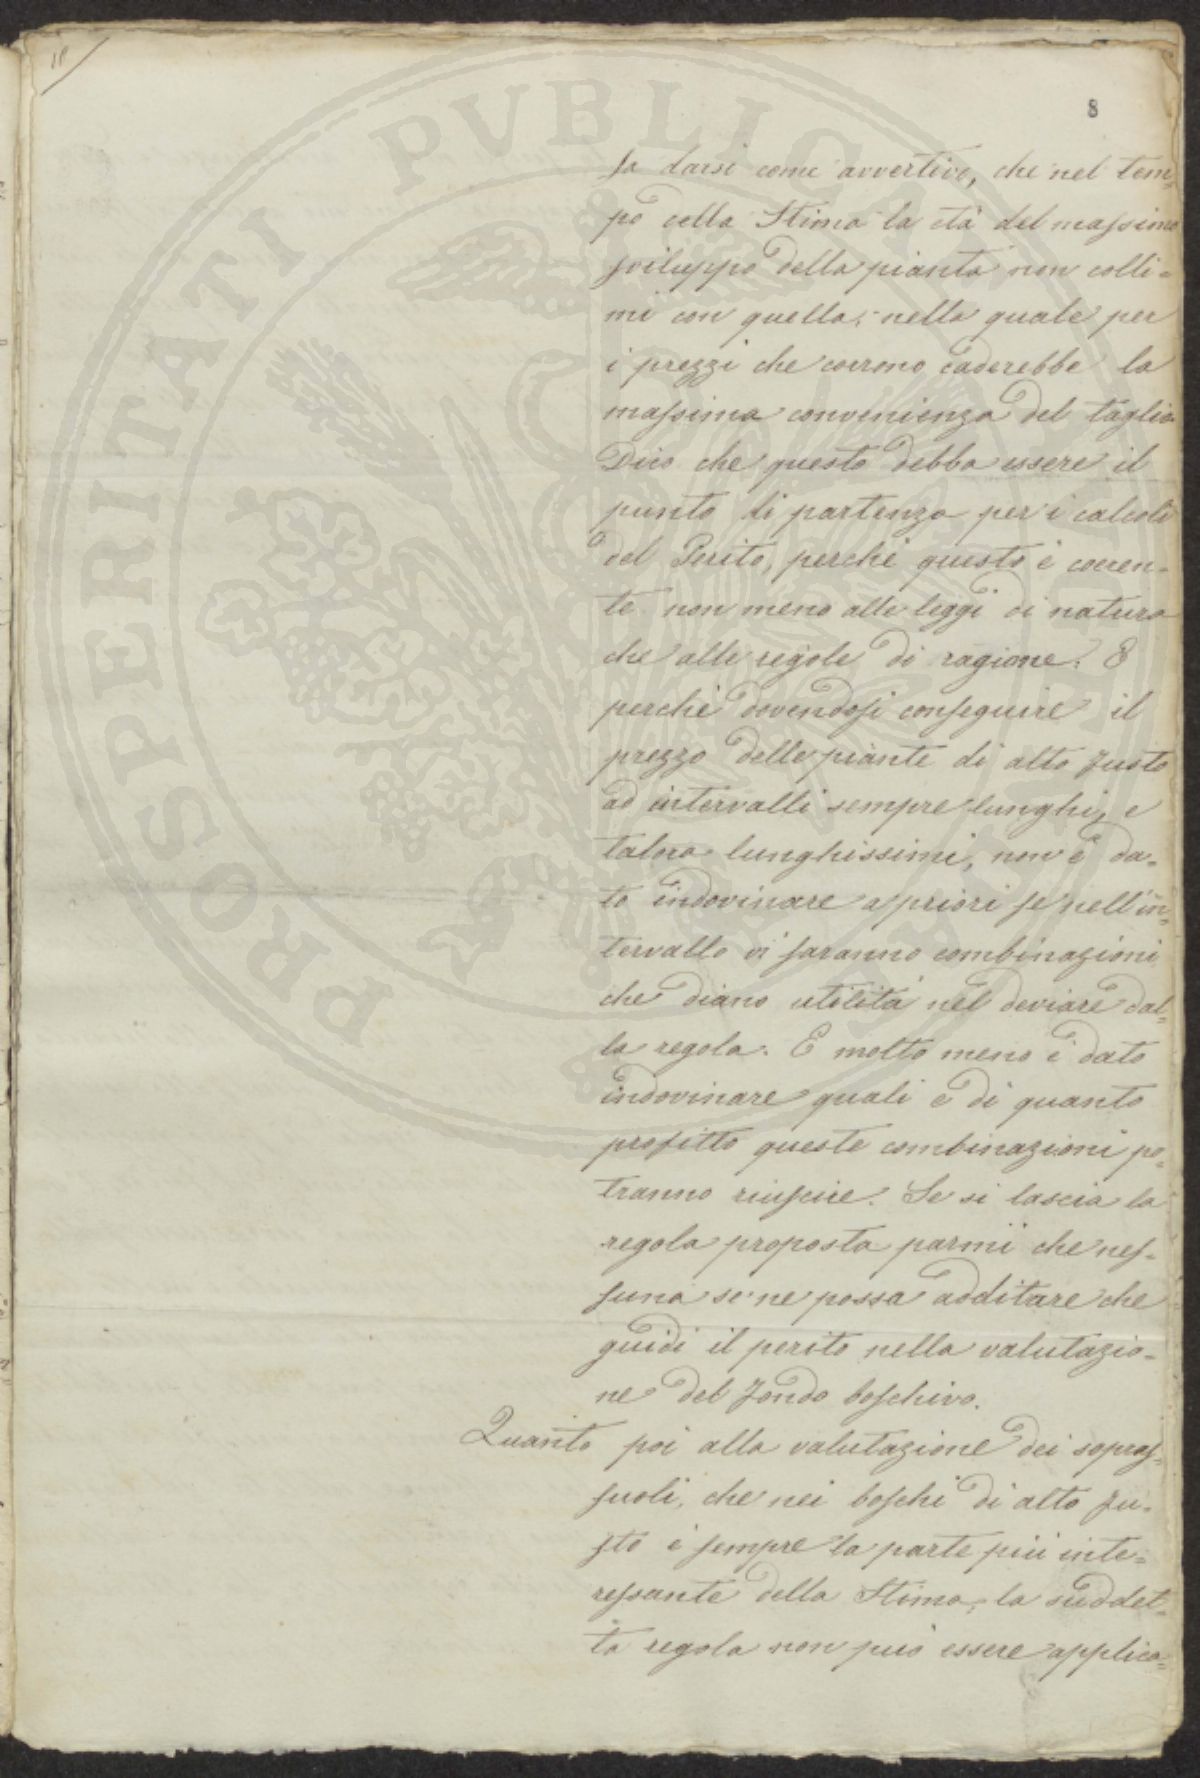 18
8
sa darsi come avvertivo, che nel tem-
po della Stima la età del massimo
sviluppo della pianta non colli-
mi con quella, nella quale per
i prezzi che corrono caderebbe la
massima convenienza del taglio.
Dico che questo debba essere il
punto di partenza per i calcoli
del Perito, perchè questo è coeren-
te non meno alle leggi di natura
che alle regole di ragione. E
perchè dovendosi conseguire il
prezzo delle piante di alto fusto
ad intervalli sempre lunghi, e
talora lunghissimi, non è da-
to indovinare a priori se nell'in-
tervallo vi saranno combinazioni
che diano utilità nel deviare dal-
la regola. E molto meno è dato
indovinare quali e di quanto
profitto queste combinazioni po-
tranno riuscire. Se si lascia la
regola proposta parmi che nes-
suna se ne possa additare che
guidi il perito nella valutazio-
ne del fondo boschivo.
Quanto poi alla valutazione dei sopras-
suoli, che nei boschi di alto fu-
sto è sempre la parte più inte-
ressante della Stima, la suddet-
ta regola non può essere applica-
PROSPERITATI PVBLICAE